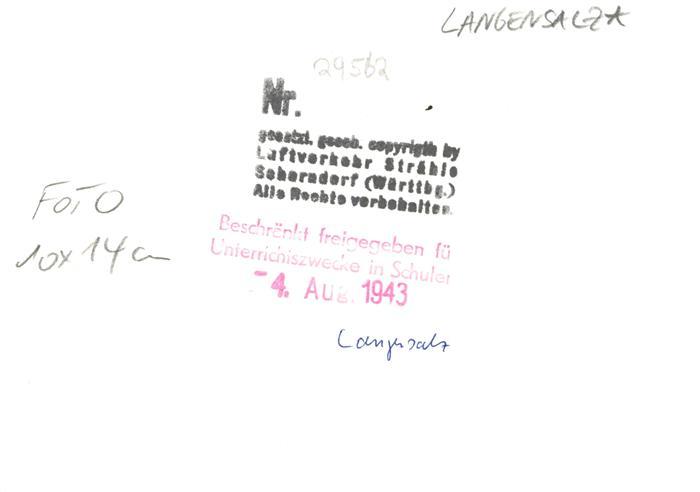 LANGENSALZA
29562
Nr.
gesetzl. gesch. copyrigth by
Luftverkehr Strähle
Schorndorf (Württbg.)
Alle Rechte vorbehalten.
FOTO
10x14cm
Beschränkt freigegeben fü
Unterrichtszwecke in Schulen
-4. Aug. 1943
Langensalz